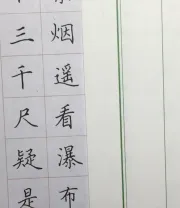 烟遥看瀑布
三千尺疑是